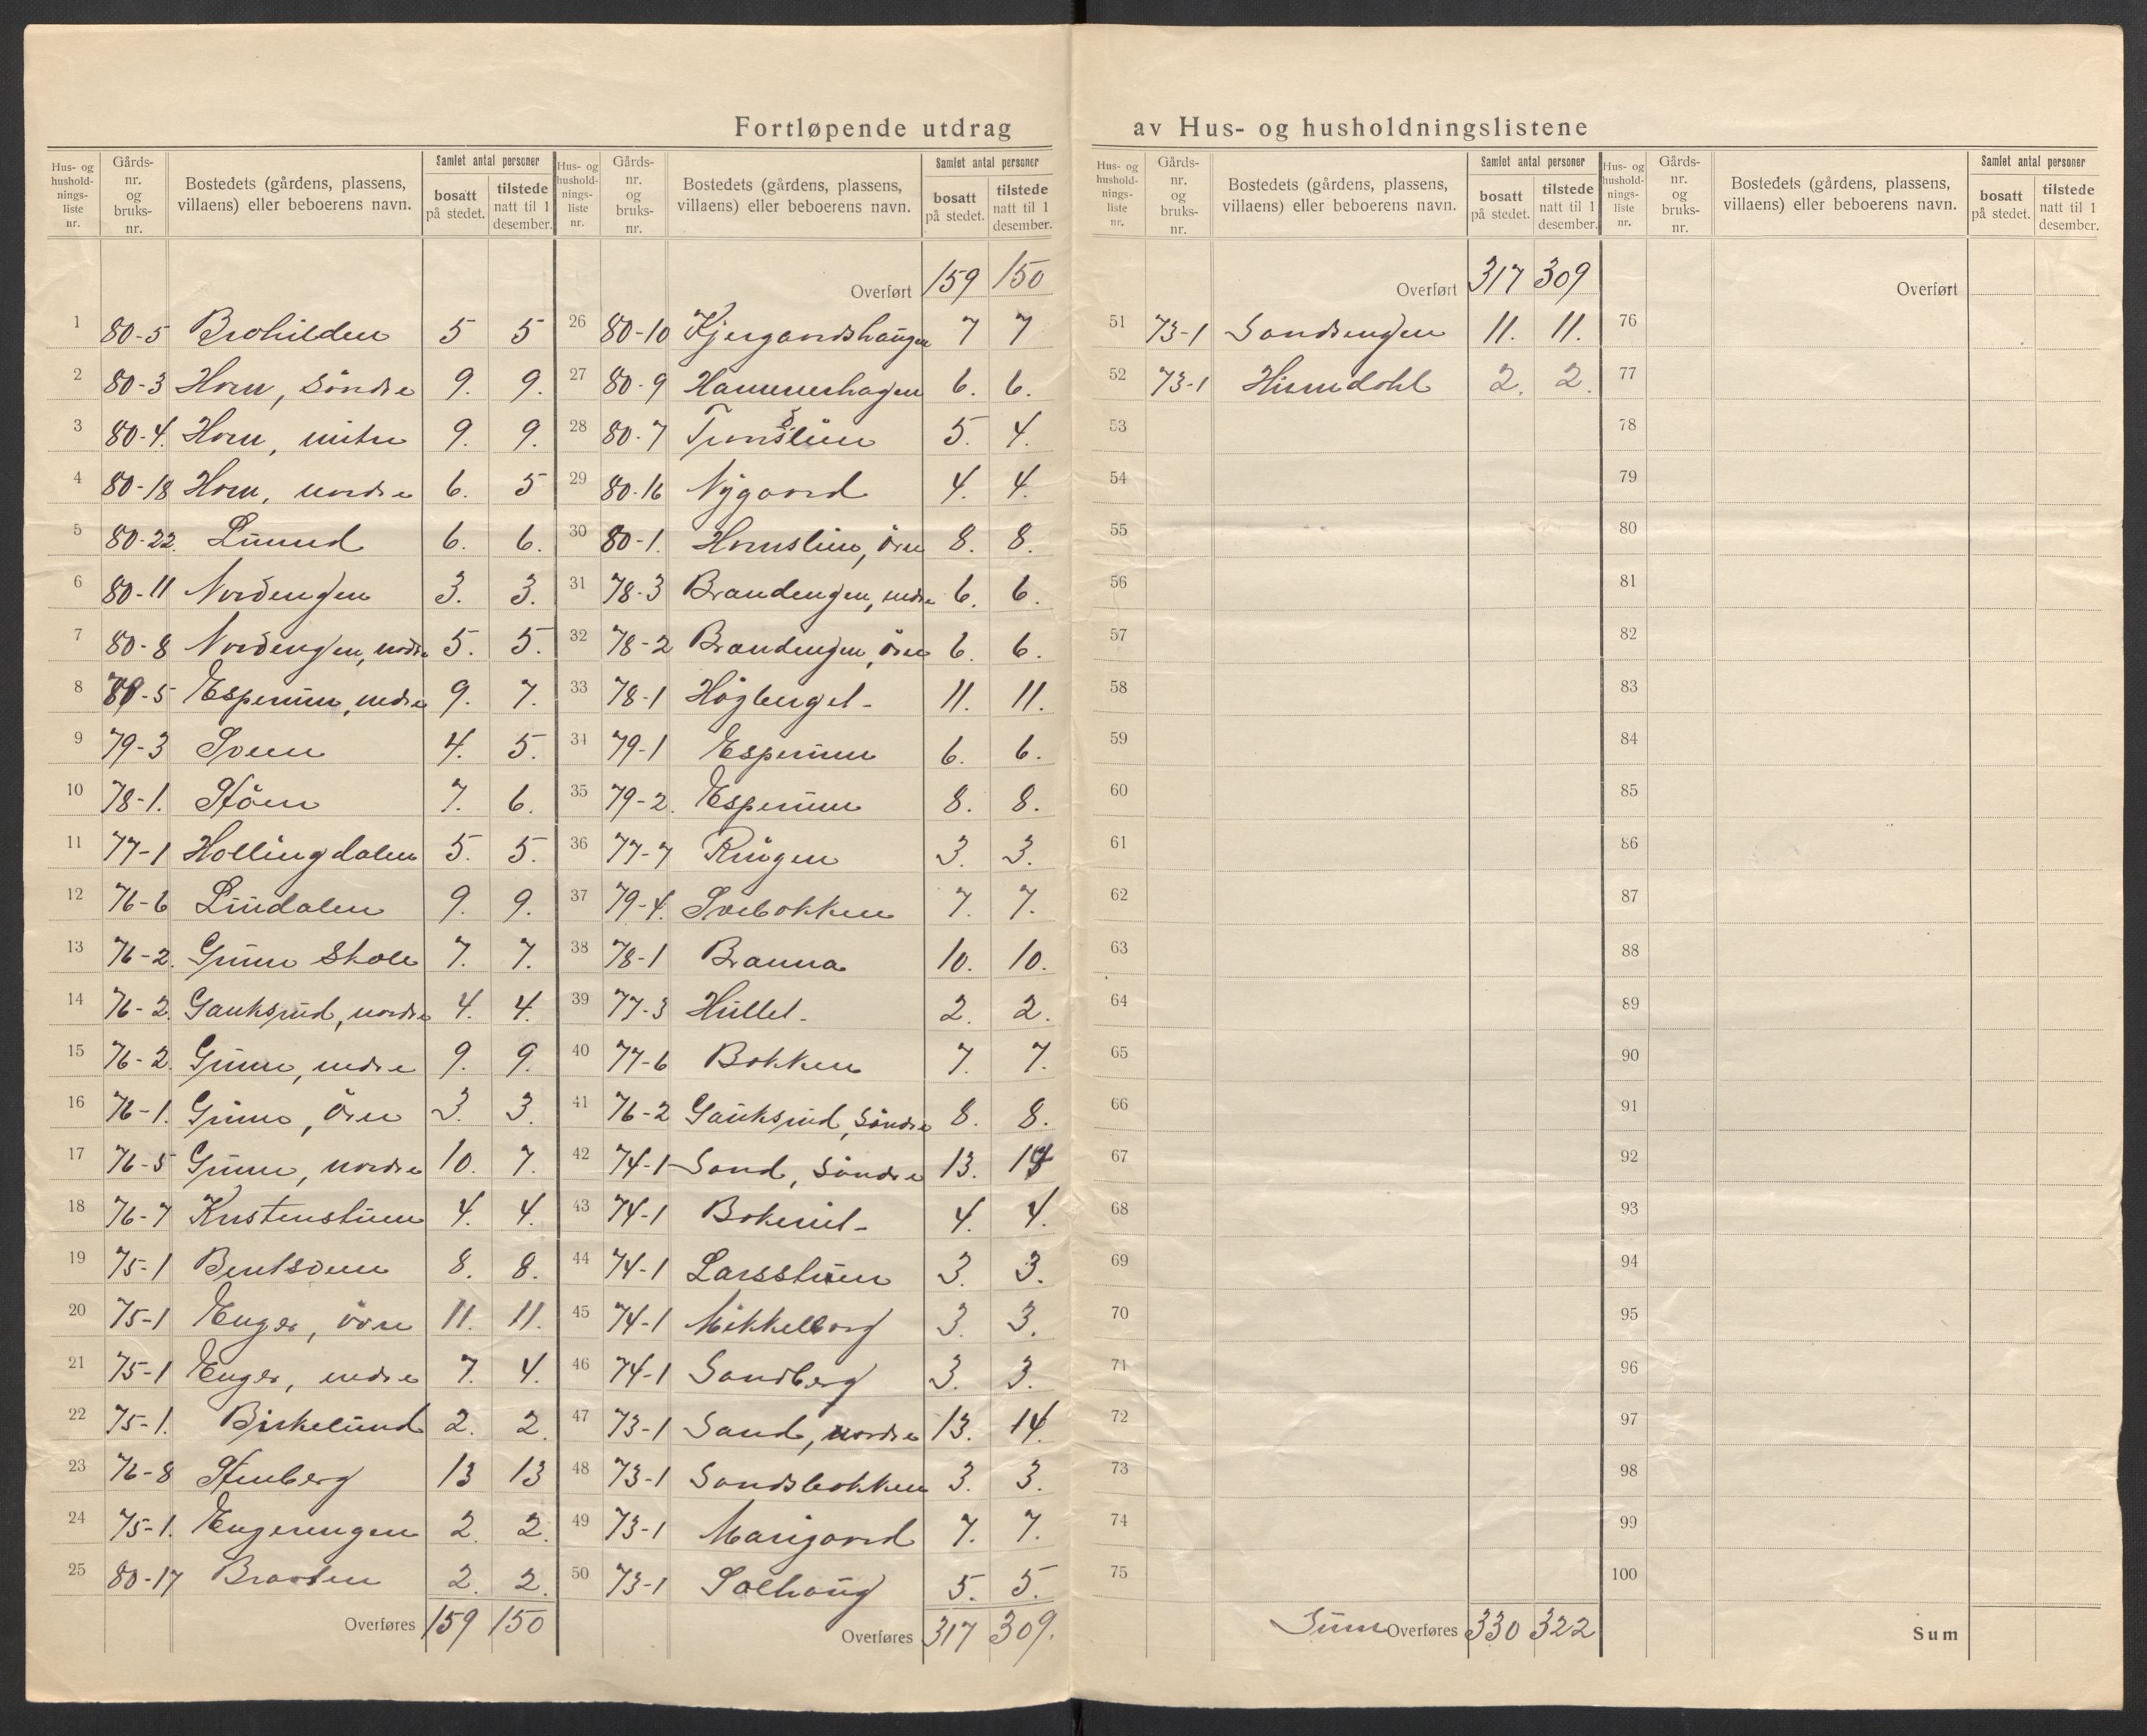 Fortløpende utdrag av Hus- og husholdningslistene
Hus- og husholdnings-liste nr. Gårds-nr. og bruks-nr. Bostedets (gårdens, plassens, villaens) eller beboerens navn. Samlet antal personer bosatt på stedet. tilstede natt til 1 desember.
Hus- og husholdnings-liste nr. Gårds-nr. og bruks-nr. Bostedets (gårdens, plassens, villaens) eller beboerens navn. Samlet antal personer bosatt på stedet. tilstede natt til 1 desember.
Hus- og husholdnings-liste nr. Gårds-nr. og bruks-nr. Bostedets (gårdens, plassens, villaens) eller beboerens navn. Samlet antal personer bosatt på stedet. tilstede natt til 1 desember.
Hus- og husholdnings-liste nr. Gårds-nr. og bruks-nr. Bostedets (gårdens, plassens, villaens) eller beboerens navn. Samlet antal personer bosatt på stedet. tilstede natt til 1 desember.
1 80-5 Brohilden 5 5
2 80-3 Horn, Söndre 9. 9.
3 80-4. Horn, mitre 9. 9.
4 80-18 Horn, nordre 6. 5
5 80-22. Lünnd 6. 6.
6 80-11 Nordengen 3. 3.
7 80-8 Nordengen, nordre 5. 5.
8 79-5 Esperum, nedre 9. 7.
9 79-3 Sveen 4. 5.
10 78-1. Stöen 7. 6.
11 77-1 Hollingdalen 5. 5.
12 76-6 Lindalen 9. 9.
13 76-2. Grime Skole 7. 7.
14 76-2. Gauksrud, nordre 4. 4.
15 76-2. Grime, nedre 9. 9.
16 76-1. Grime, Övre 3. 3.
17 76-5 Grime, nordre 10. 7.
18 76-7 Kristenstuen 4. 4.
19 75-1 Bentsveen 8. 8.
20 75-1 Enger, övre 11. 11.
21 75-1 Enger, nedre 7. 4.
22 75-1. Birkelund 2. 2.
23 76-8 Stenberg 13 13
24 75-1. Engerengen 2. 2.
25 80-17 Braaten 2. 2.
Overføres 159 150
Overført 159 150
26 80-10 Kjergaardshaugen 7 7
27 80-9 Hammerhagen 6. 6.
28 80-7 5. 4.
29 80-16 Nygaard 4. 4.
30 80-1. Hornslien, övre 8. 8.
31 78-3 Brandengen, nedre 6. 6.
32 78-2 Brandengen, övre 6. 6.
33 78-1 Högberget 11. 11.
34 79-1 Esperum 6. 6.
35 79-2. Esperum 8. 8.
36 77-7 Ringen 3. 3.
37 79-4. Svebakken 7. 7.
38 78-1 Branna 10. 10.
39 77-3 Hullet 2. 2.
40 77-6 Bakken 7. 7.
41 76-2 Gauksrud, Söndre 8. 8.
42 74-1 Sand, Söndre 13.
43 74-1 4. 4.
44 74-1 Larsstuen 3. 3.
45 74-1 Mikkelborg 3. 3.
46 74-1 Sandberg 3. 3.
47 73-1 Sand, nordre 13. 14.
48 73-1 Sandsbakken 3. 3.
49 73-1 Marigaard 7. 7.
50 73-1 Solhaug 5. 5.
Overføres 317 309.
Overført 317 309
51 73-1 Sandsengen 11. 11.
52 73-1 Hiundahl 2. 2.
53
54
55
56
57
58
59
60
61
62
63
64
65
66
67
68
69
70
71
72
73
74
75
Sum Overføres 330 322
Overført
76
77
78
79
80
81
82
83
84
85
86
87
88
89
90
91
92
93
94
95
96
97
98
99
100
Sum